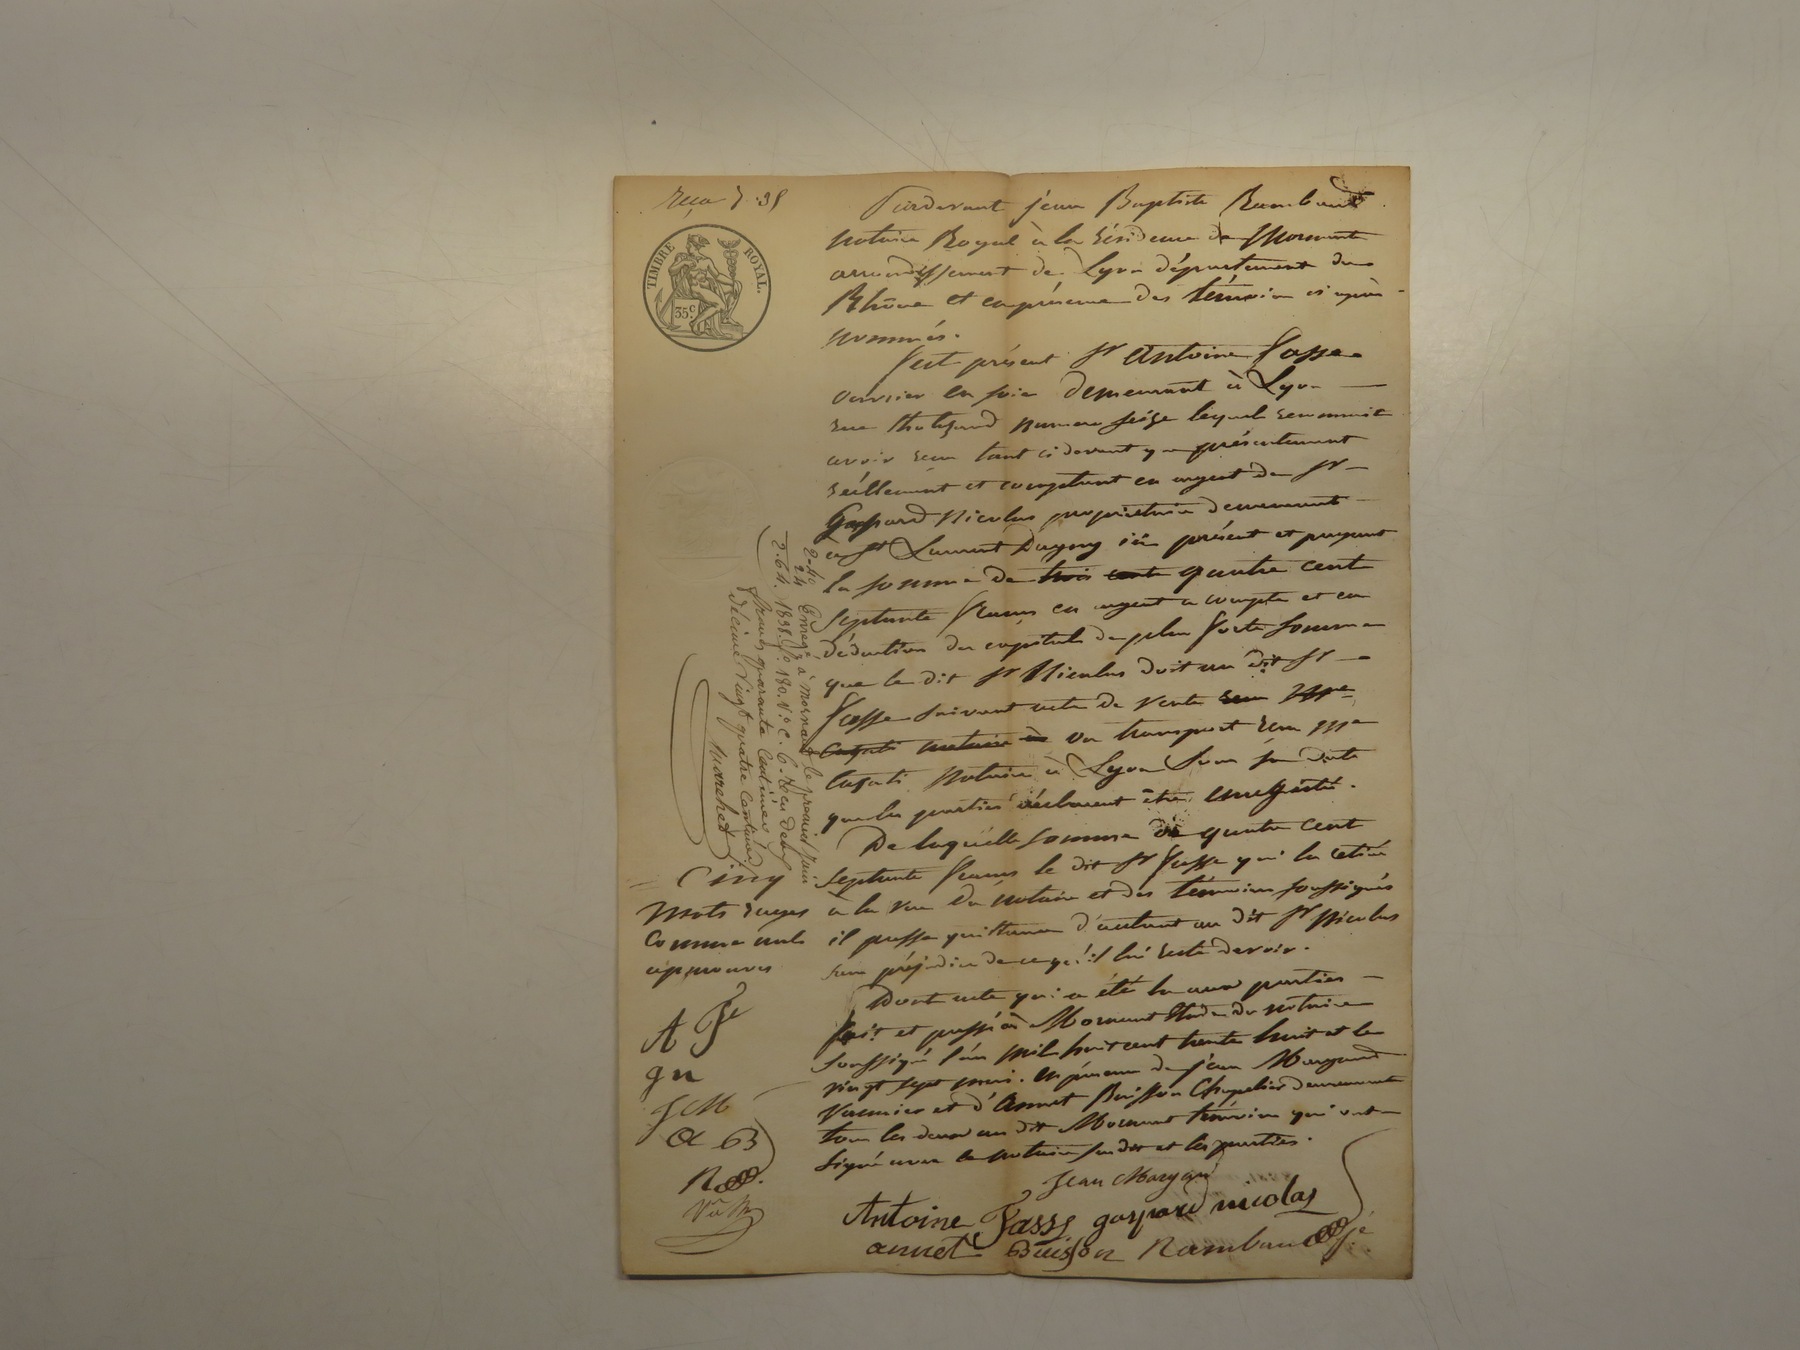 TIMBRE ROYAL.
35 c.
Pardevant jean Baptiste Rambaud
notaire Royal à la résidence de Mornant
arrondissement de Lyon département du
Rhône et en présence des témoins ci après
nommés.
fut présent Sr Antoine Fasse
ouvrier en soie demeurant à Lyon
rue numero seize lequel reconnait
avoir reçu tant ci devant que présentement
réellement et comptant en argent de Sr
Gaspard Nicolas propriétaire demeurant
à St Laurent Dagny ici présent et payant
la somme de trois cents quatre cent
septante francs en argent a compte et en
déduction du capital de plus forte somme
que le dit Sr Nicolas doit au dit Sr
Fasse suivant acte de vente reçu Me
Casati notaire à ou transport reçu Me
Casati notaire à Lyon sous sa date
que les parties déclarent être enregistré.
De laquelle somme de quatre cent
septante francs le dit Sr Fasse qui la retiré
à la vue du notaire et des témoins soussignés
il passe quittance d'autant au dit Sr Nicolas
sans préjudice de ce qu'il lui reste devoir.
Dont acte qui a été lu aux parties
fait et passé à Mornant Etude du notaire
soussigné l'an mil huit cent trente huit et le
vingt sept mai. En présence de jean Margand
et d'Annet Buisson Chapelier demeurant
tous les deux au dit Mornant témoins qui ont
signé avec le notaire susdit et les parties.
Jean Margand
Antoine Fasse gaspard nicolas
annet Buisson Rambaud
2-40
24
2.64.
Enregé à mornant le premier juin
1838. fo. 180. Vo. c. 6. Reçu deux
francs quarante Centimes
décime Vingt quatre Centimes
Marchet
Cinq
mots rayés
comme nuls
approuvés
A Fe
gn
JM
a B
R